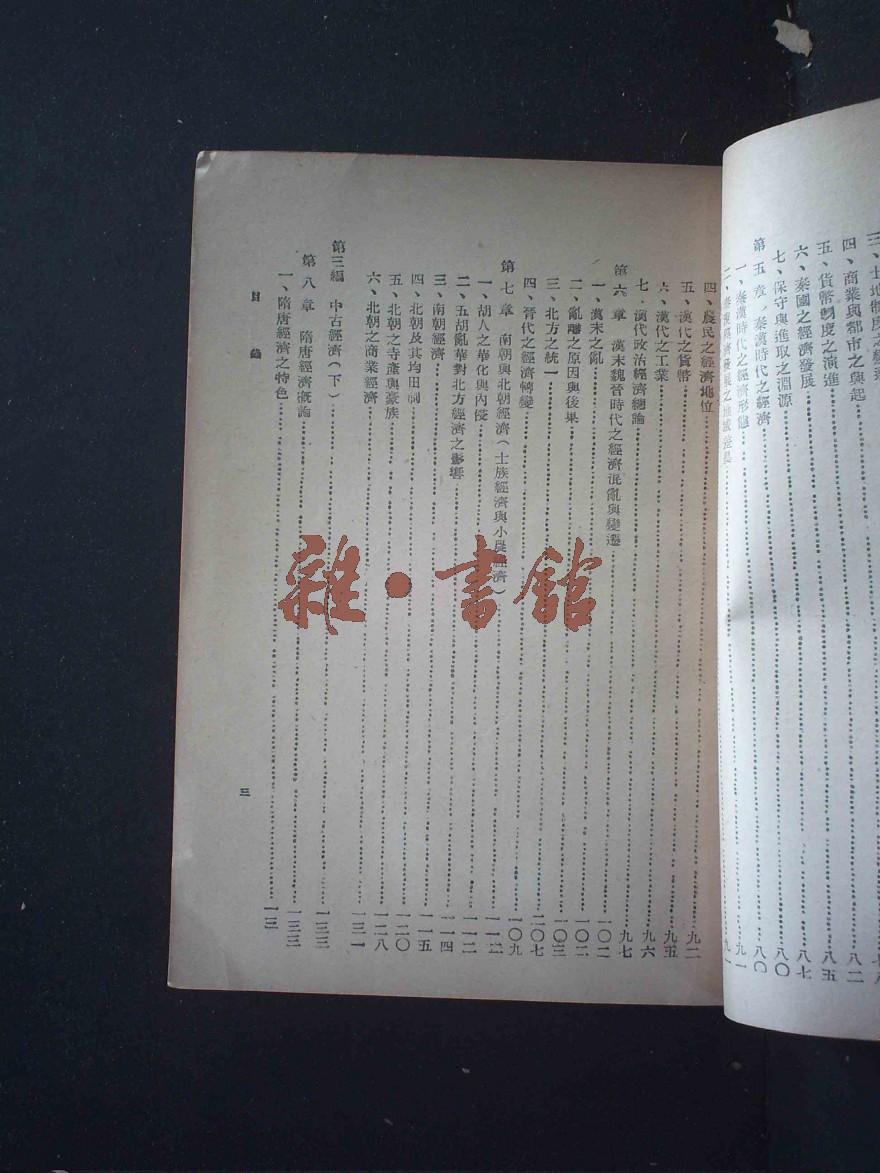 四、商業與都市之興起……八二
五、貨幣制度之演進……八五
六、秦國之經濟發展……八七
七、保守與進取之淵源……八〇
第五章 秦漢時代之經濟……八〇
一、秦漢時代之經濟形態……九一
四、農民之經濟地位……九二
五、漢代之貨幣……九五
六、漢代之工業……九六
七、漢代政治經濟總論……九七
第六章 漢末魏晉時代之經濟混亂與變遷……一〇二
一、漢末之亂……一〇二
二、亂離之原因與後果……一〇三
三、北方之統一……二〇七
四、晉代之經濟轉變……一〇九
第七章 南朝與北朝經濟(士族經濟與小農經濟)……一一二
一、胡人之華化與內侵……一一二
二、五胡亂華對北方經濟之影響……一一四
三、南朝經濟……一一五
四、北朝及其均田制……一二〇
五、北朝之寺產與豪族……一二八
六、北朝之商業經濟……一三一
第三編 中古經濟(下)……一三三
第八章 隋唐經濟概論……一三三
一、隋唐經濟之特色……一三
目錄
三
雜·書館